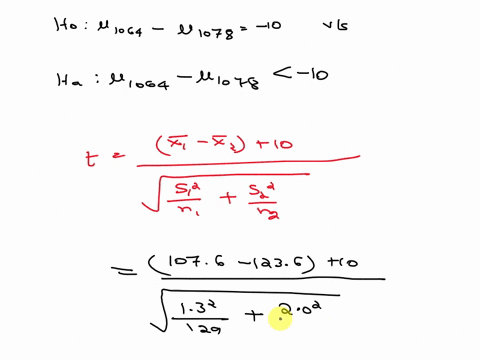 Ho: μ1064 - μ1078 = -10 v/s
Ha: μ1064 - μ1078 < -10
t = (x̄1 - x̄2) + 10
√ S1²/n1 + S2²/n2
= (107.6 - 123.6) + 10
√ 1.3²/129 + 2.0²